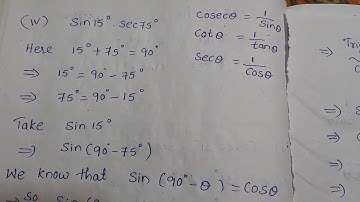 (IV) Sin15°. Sec75°
Here 15°+75°=90°
⇒ 15°=90°-75°
⇒ 75°=90°-15°
Take Sin15°
⇒ Sin(90°-75°)
We know that Sin(90°-θ)=Cosθ
cosecθ = 1/Sinθ
Cotθ = 1/tanθ
Secθ = 1/Cosθ